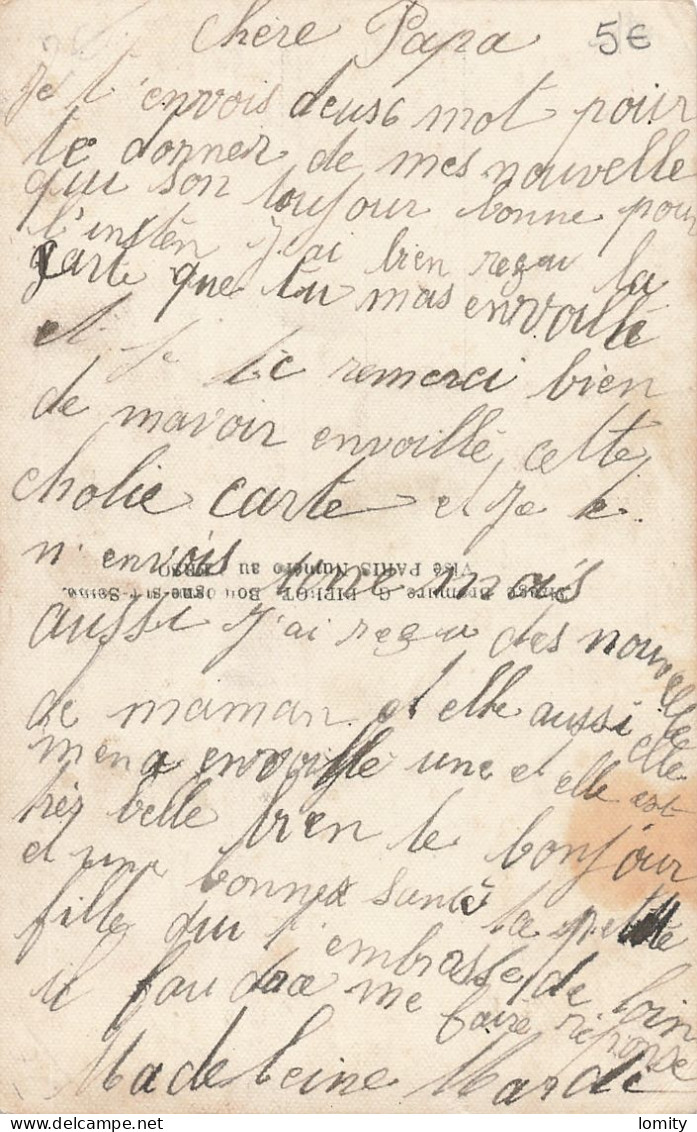 Chere Papa
5€
Je t'envois deus mot pour
te donner de mes nouvelle
qui son toujour bonne pour
l'instèn j'ai bien reçu la
carte que tu mas envoillé
et Je te remerci bien
de mavoir envoillé cette
cholie carte et Je te
n'envois une mais
aussi J'ai reçu des nouvelle
de maman et elle aussi elle
mena envoille une et elle est
très belle bien le bonjour
et une bonnes santé ta petite
fille qui t'embrasse de loin
il faudra me faire réponse
Madeleine Marde
Tirage Bromure G. PIPROT Boulogne-sur-Seine.
Visé PARIS Numéro au VERSO
lomity